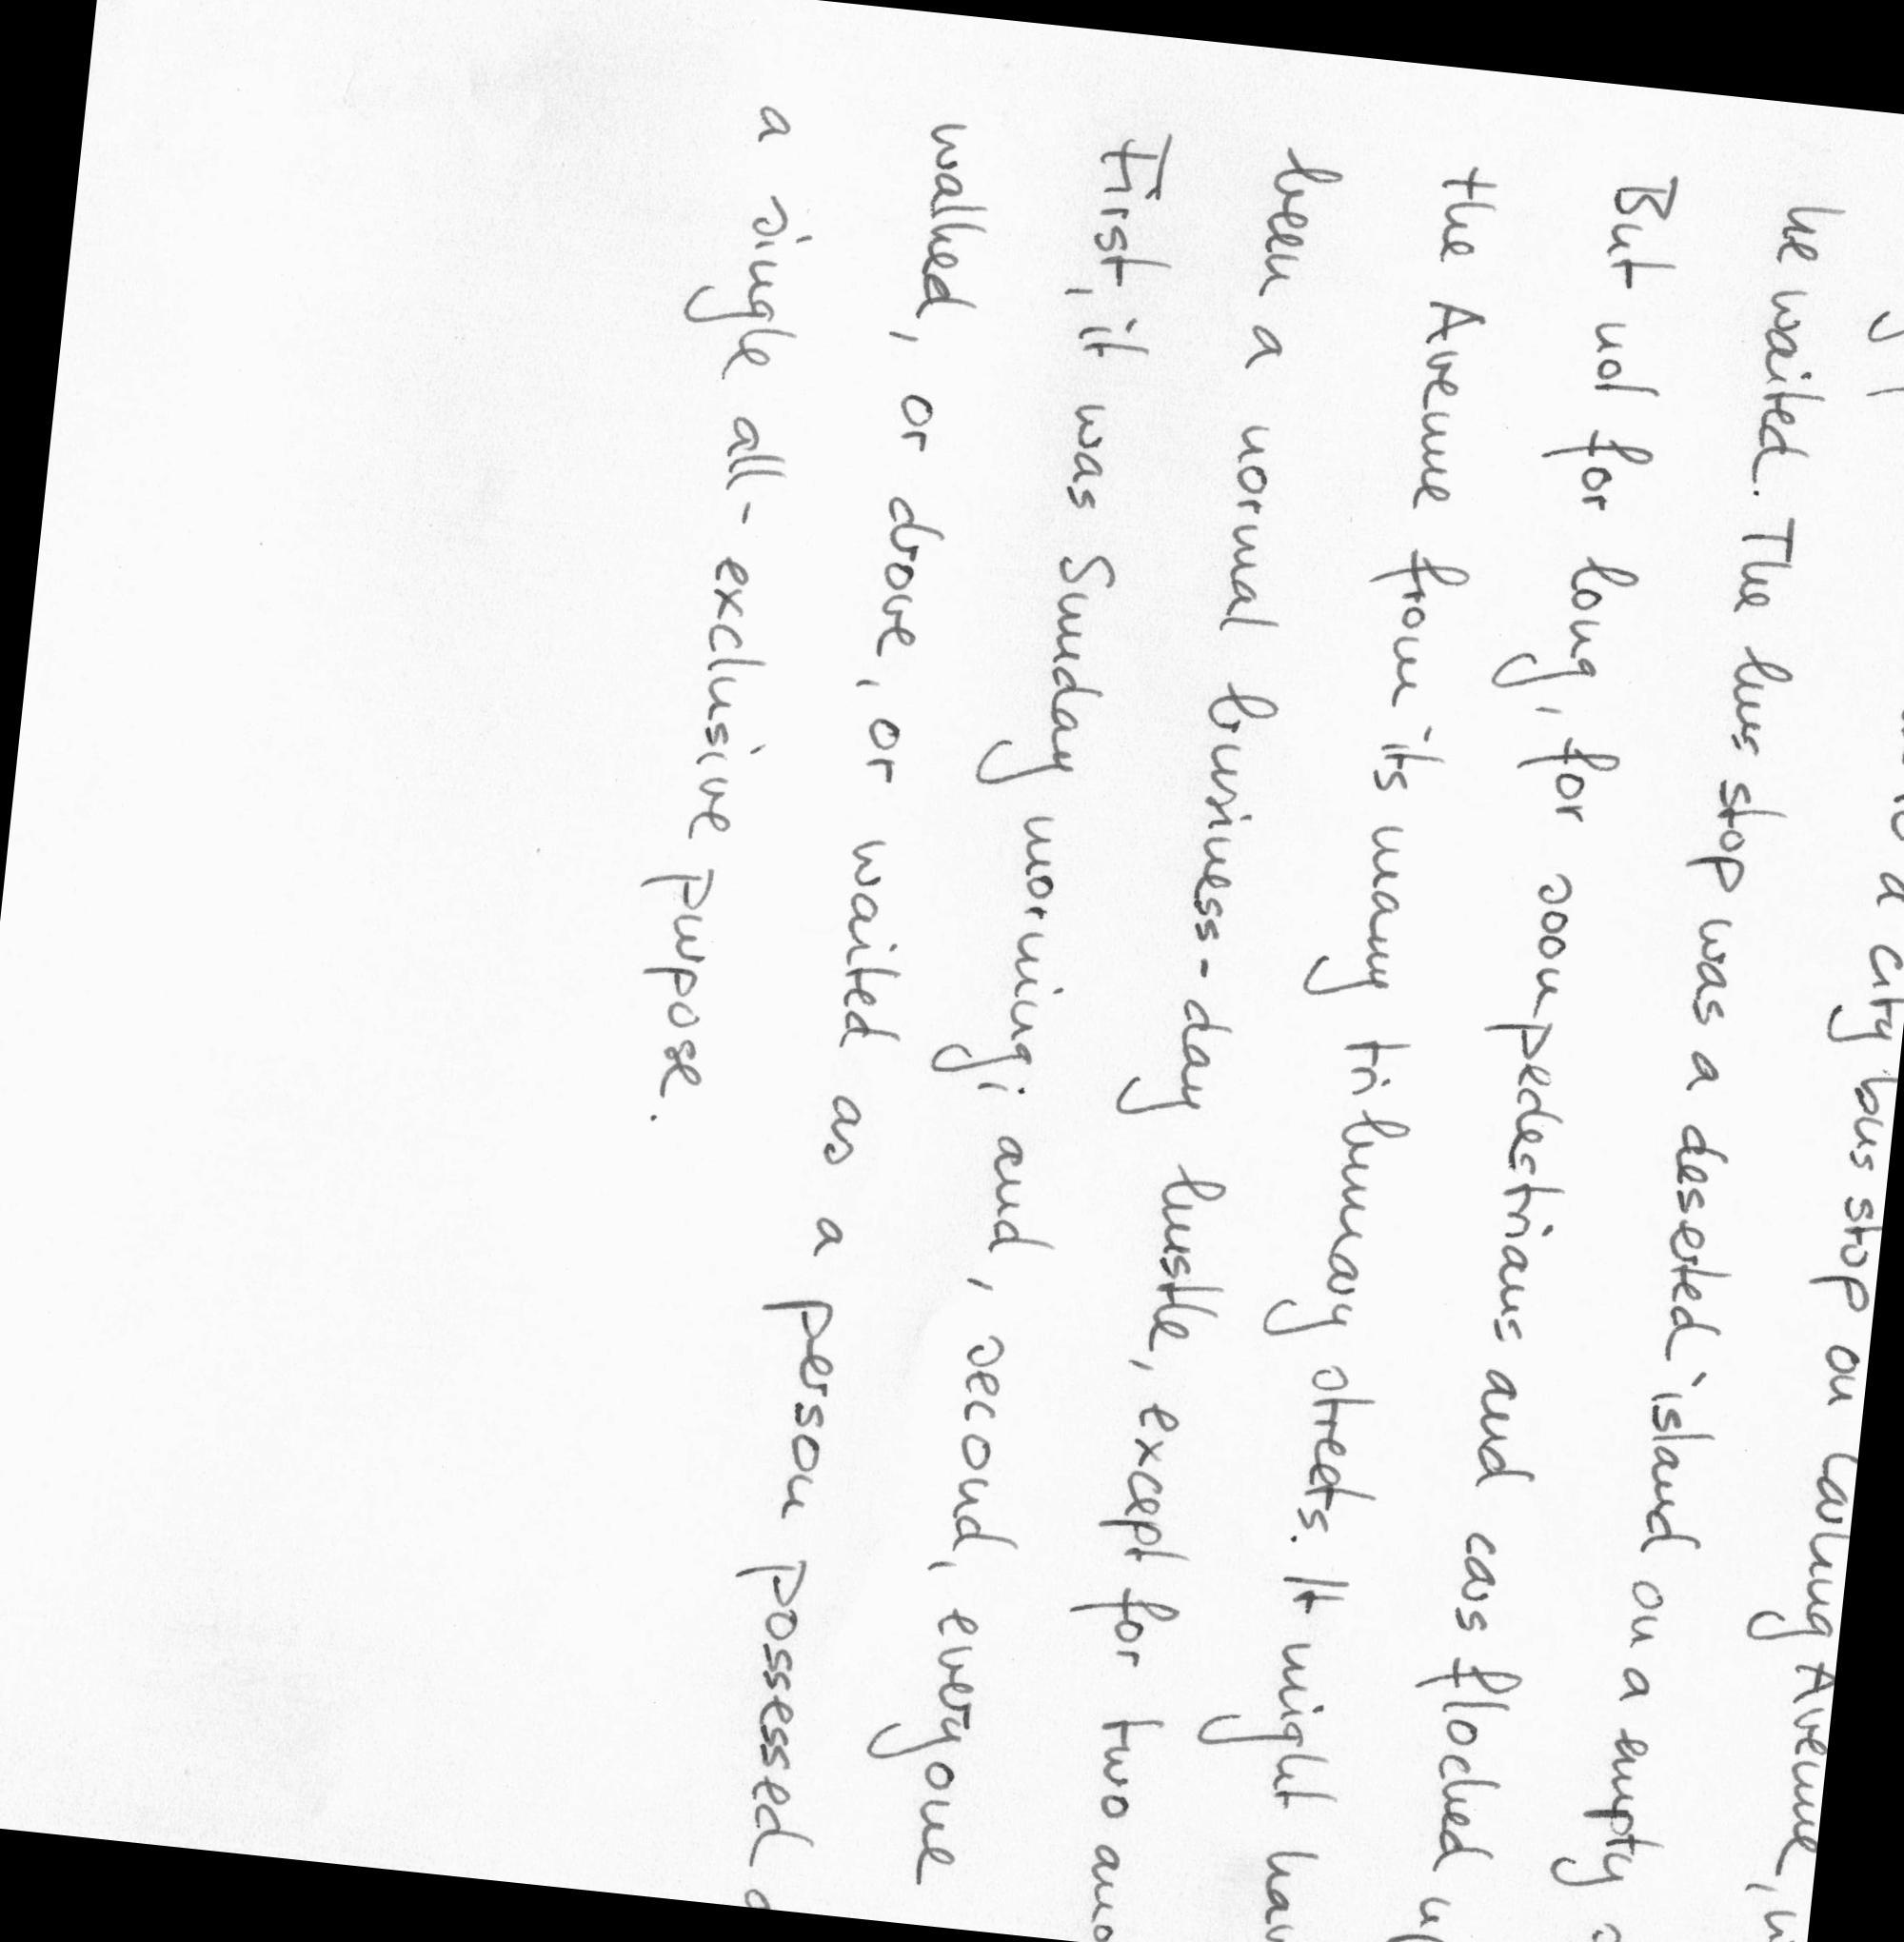 a city bus stop on Carling Avenue,
he waited. The bus stop was a deserted island on a empty
But not for long, for soon pedestrians and cars flocked
the Avenue from its many tribunary streets. It might
been a normal business-day hustle, except for two
First, it was Sunday morning; and, second, everyone
walked, or drove, or waited as a person possessed
a single all-exclusive purpose.